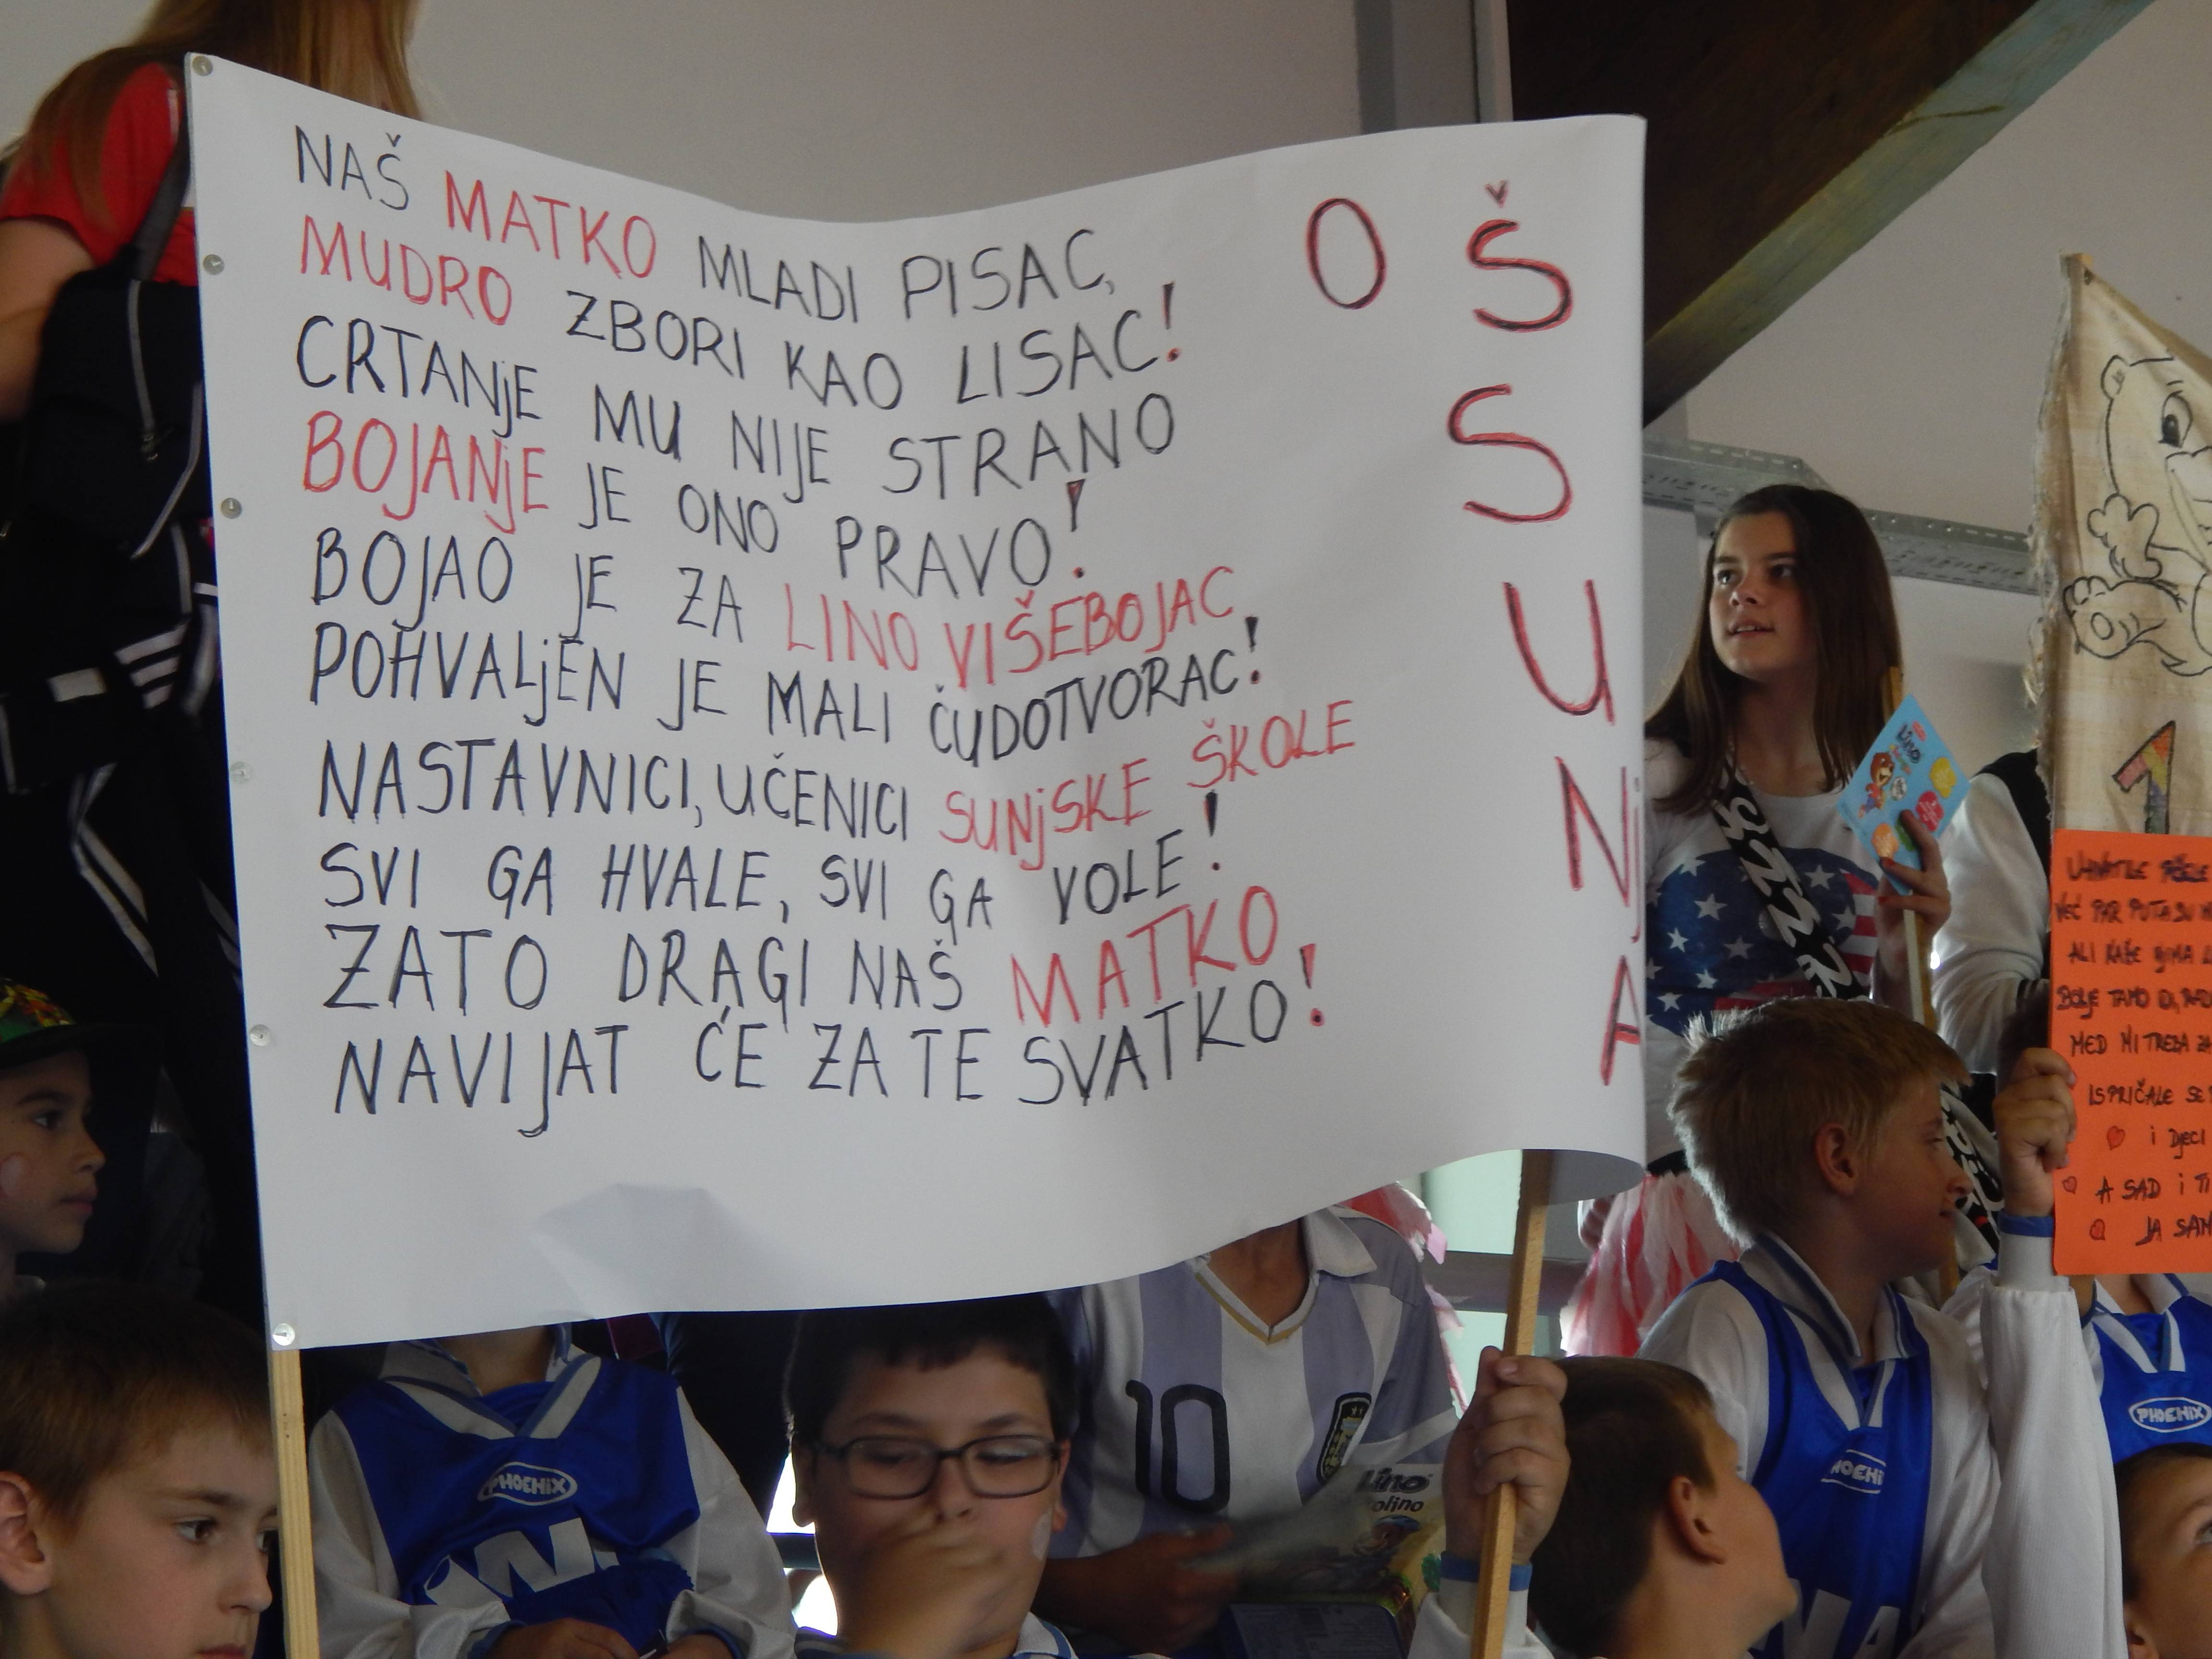 NAŠ MATKO MLADI PISAC,
MUDRO ZBORI KAO LISAC!
CRTANjE MU NIJE STRANO
BOJANjE JE ONO PRAVO!
BOJAO JE ZA LINO VIŠEBOJAC,
POHVALjEN JE MALI ČUDOTVORAC!
NASTAVNICI, UČENICI SUNjSKE ŠKOLE
SVI GA HVALE, SVI GA VOLE!
ZATO DRAGI NAŠ MATKO
NAVIJAT ĆE ZA TE SVATKO!
O Š
S
U
Nj
A
Lino
1
VEĆ PAR PUTA SU
ALI KAŽE
BOLJE TAMO
MED MI TREBA ZA
ISPRIČALE SE
i DJECI
A SAD i TI
JA SAM
10
Lino
olino
PHOENIX
PHOENIX